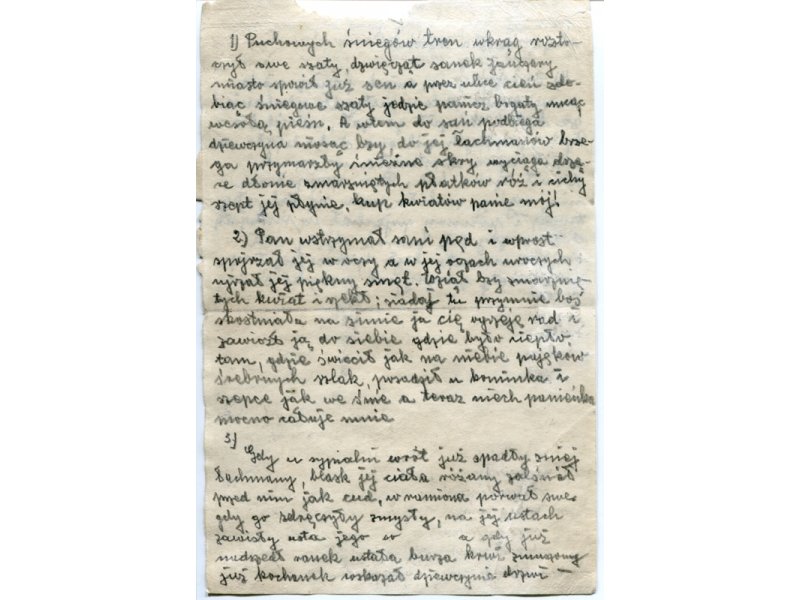 1) Puchowych śniegów tren wkrąg rozto-
czył swe szaty, dzwięcząt sanek
miasto spowił już sen a przez ulice cień zdo-
biąc śniegowe szaty jedzie panicz bogaty nucąc
wesołą pieśń. A wtem do sań podbiega
dziewczyna niosąc bzy do jej łachmanów brze-
ga przymarzły śnieżne skry wyciąga drżą-
ce dłonie zmarzniętych płatków róż i cichy
szept jej płynie, kup kwiatów panie mój!
2) Pan wstrzymał sani pęd i wprost
spójrzał jej w oczy a w jej oczach uroczych
ujrzał jej piękny smęt. Wziął bzy zmarznię-
tych kwiat i rzekł; siadaj tu przymnie boś
skostniała na zimie ja cię ogrzeję rad i
zawiozł ją do siebie gdzie było ciepło,
tam, gdzie świecił jak na niebie pająków
srebrnych szlak, posadził u kominka i
szepce jak we śnie a teraz niech panienka
mocno całuje mnie
3)
Gdy u sypialni wrót już spadły z niej
łachmany, blask jej ciała różany zalśnił
przed nim jak cud, w ramiona porwał swe
gdy go zdręczyły zmysły, na jej ustach
zawisły usta jego w a gdy już
nadszedł ranek ustała burza krwi znudzony
już kochanek wskazał dziewczynie drzwi –